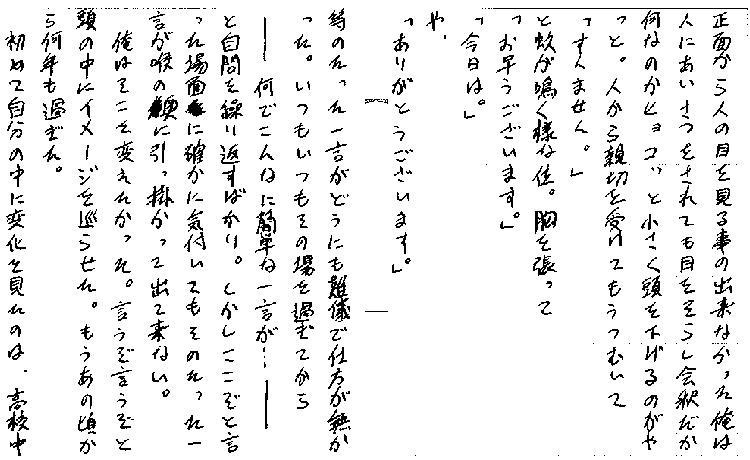 正面から人の目を見る事の出来なかった俺は
人にあいさつをされても目をそらし会釈だか
何なのかヒョコッと小さく頭を下げるのがや
っと。人から親切を受けてもうつむいて
「すんません。」
と蚊が鳴く様な位。胸を張って
「お早うございます。」
「今日は。」
や、
「ありがとうございます。」
等のたった一言がどうにも難儀で仕方が無か
った。いつもいつもその場を過ぎてから
――何でこんなに簡単な一言が…――
と自問を繰り返すばかり。しかしここぞと言
った場面に確かに気付いてもそのたった一
言が喉の奥に引っ掛かって出て来ない。
俺はそこを変えたかった。言うぞ言うぞと
頭の中にイメージを巡らせた。もうあの頃か
ら何年も過ぎた。
初めて自分の中に変化を見たのは、高校中